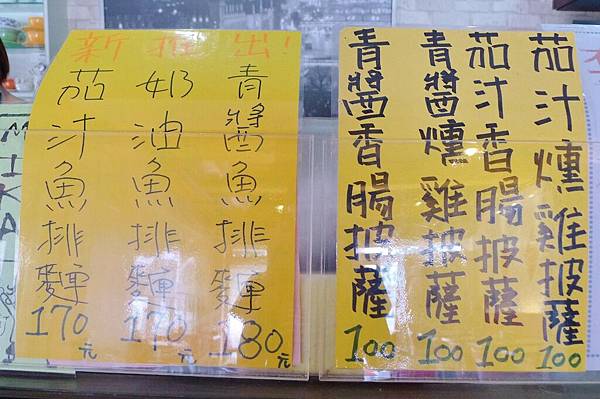 新推出!
青醬魚排麵180元
奶油魚排麵170元
茄汁魚排麵170元
茄汁燻雞披薩100
茄汁香腸披薩100
青醬燻雞披薩100
青醬香腸披薩100